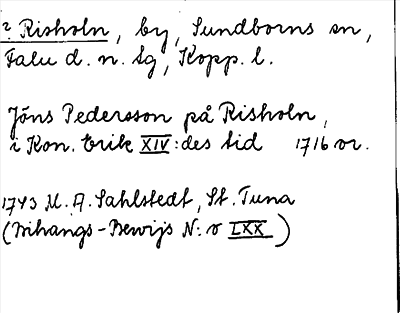 2. Risholn, by, Sundborns sn,
Falu d. n. tg, Kopp. l.
Jöns Pedersson på Risholn,
i Kon. Erik XIV:des tid 1716 or.
1743 U. A. Sahlstedt, St. Tuna
(Bihangs-Bewijs N:o LXX)